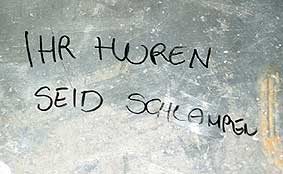 IHR HUREN
SEID SCHLAMPEN